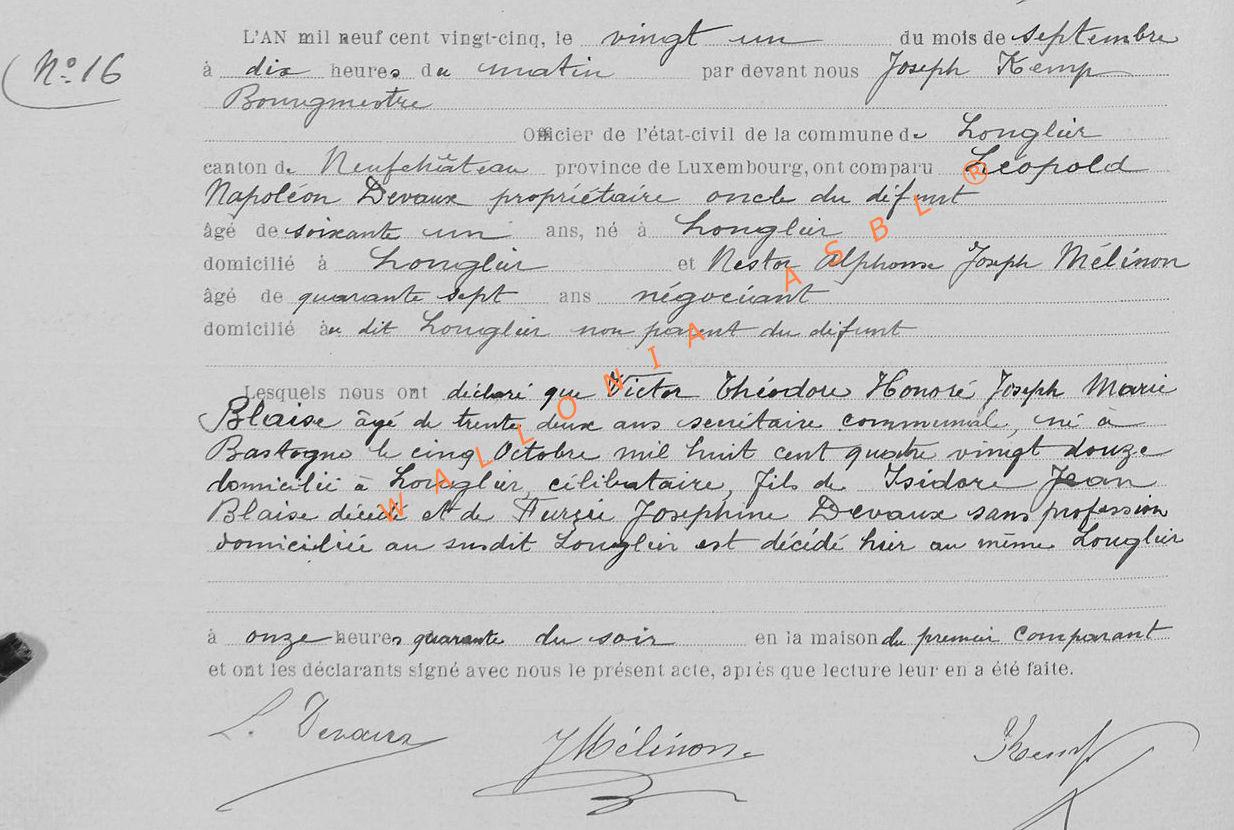 L'AN mil neuf cent vingt-cinq, le vingt un du mois de septembre
N° 16
à dix heures du matin par devant nous Joseph Kemp
Bourgmestre
Officier de l'état-civil de la commune de Longlier
canton de Neufchâteau province de Luxembourg, ont comparu Léopold
Napoléon Devaux propriétaire oncle du défunt
âgé de soixante un ans, né à Longlier
domicilié à Longlier et Nestor Alphonse Joseph Mélinon
âgé de quarante sept ans négociant
domicilié au dit Longlier non parent du défunt
Lesquels nous ont déclaré que Victor Théodore Honoré Joseph Marie
Blaise âgé de trente deux ans secrétaire communal, né à
Bastogne le cinq Octobre mil huit cent quatre vingt douze
domicilié à Longlier, célibataire, fils de Isidore Jean
Blaise décédé et de Furcée Josephine Devaux sans profession
domiciliée au susdit Longlier est décédé hier au même Longlier
à onze heures quarante du soir en la maison du premier comparant
et ont les déclarants signé avec nous le présent acte, après que lecture leur en a été faite.
L. Devaux JMélinon Kemp
WALLONIA ASBL ®